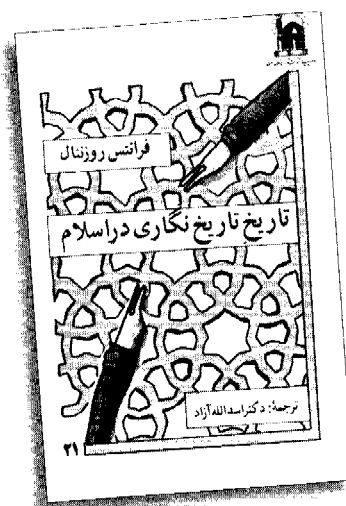 فرانتس روزنتال
تاریخ تاریخ نگاری در اسلام
ترجمهٔ: دکتر اسدالله آزاد
۲۱